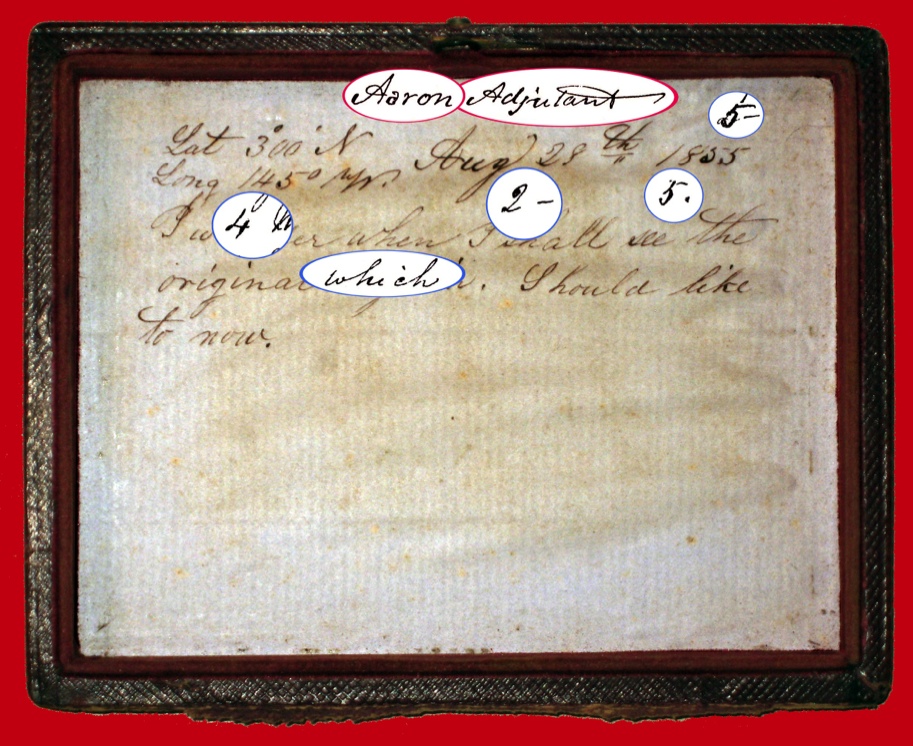 Aaron Adjutant
5-
Lat 30° 0' N Aug 28th 1855
Long 145° W.
4 2- 5.
I when I shall see the
original which . Should like
to now.